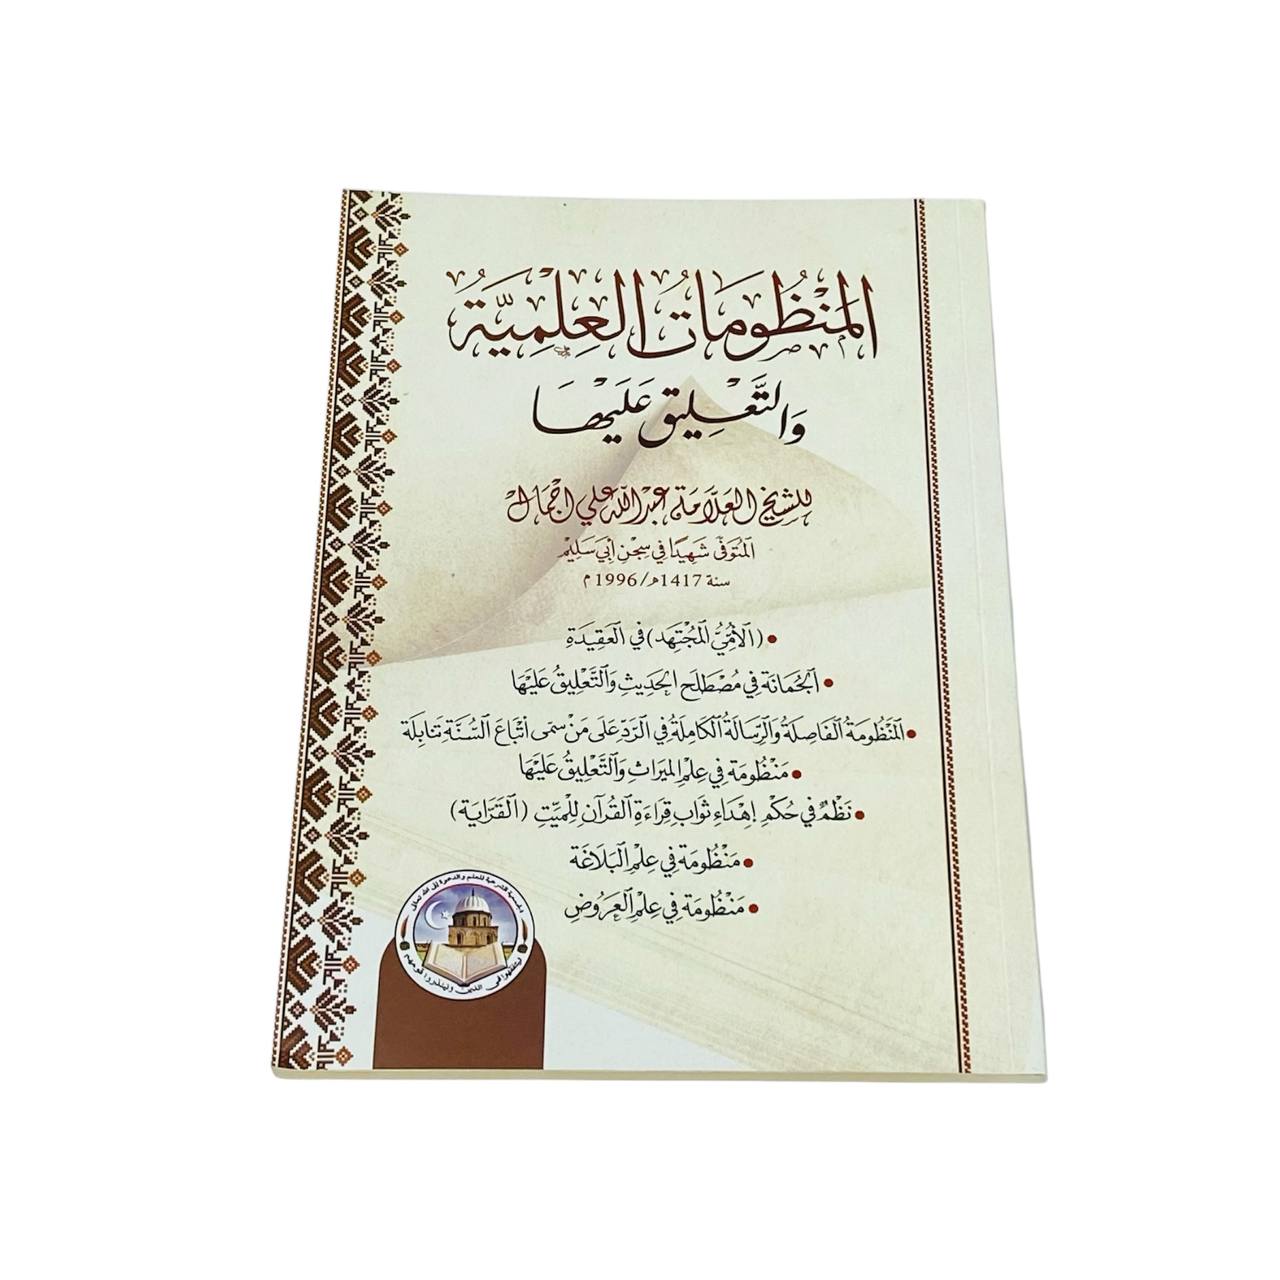 المَنْظُومَاتُ العِلْمِيَّةُ
وَالتَّعْلِيقُ عَلَيْهَا
لِلشَّيْخِ العَلَّامَةِ عَبْدِ اللهِ عَلِي اجْمَال
المُتَوَفَّى شَهِيدًا فِي سِجْنِ أَبِي سَلِيْم
سنة 1417هـ/1996م
• (الأُمِّيُّ المُجْتَهِد) فِي العَقِيدَةِ
• الجُمَانَة فِي مُصْطَلَحِ الحَدِيثِ وَالتَّعْلِيقُ عَلَيْهَا
• المَنْظُومَةُ الفَاصِلَةُ وَالرِّسَالَةُ الكَامِلَةُ فِي الرَّدِّ عَلَى مَنْ سَمَى أَتْبَاعَ السُّنَّةِ تنَابِلَة
• مَنْظُومَة فِي عِلْمِ المِيرَاثِ وَالتَّعْلِيقُ عَلَيْهَا
• نَظْمٌ فِي حُكْمِ إِهْدَاءِ ثَوَابِ قِرَاءَةِ القُرْآنِ لِلْمَيِّتِ (القَرَّايَة)
• مَنْظُومَة فِي عِلْمِ البَلَاغَة
• مَنْظُومَة فِي عِلْمِ العَرُوضِ
الجمعية الشرعية للعلم والدعوة إلى الله تعالى
ليتفقهوا في الدين ولينذروا قومهم